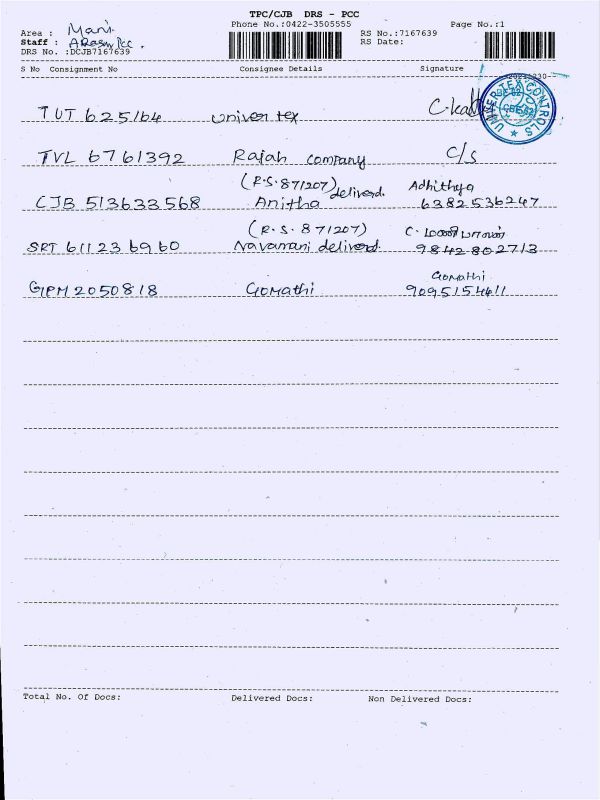 TPC/CJB DRS - PCC
Phone No.:0422-3505555 Page No.:1
Area : Mani
RS No.:7167639
Staff : PCC.
RS Date:
DRS No. :DCJB7167639
S No Consignment No Consignee Details Signature
TUT 625164 univer tex C.
UNIVER TEX CONTROLS
TVL 6761392 Rajah company C/S
(R.S.871207) delivered. Adhithya
CJB 513633568 Anitha 6382536247
(R.S. 871207) C.
SRT 611236960 Navamani delivered. 9842802713
Gomathi
GPM 2050818 Gomathi 9095154411
Total No. Of Docs: Delivered Docs: Non Delivered Docs: